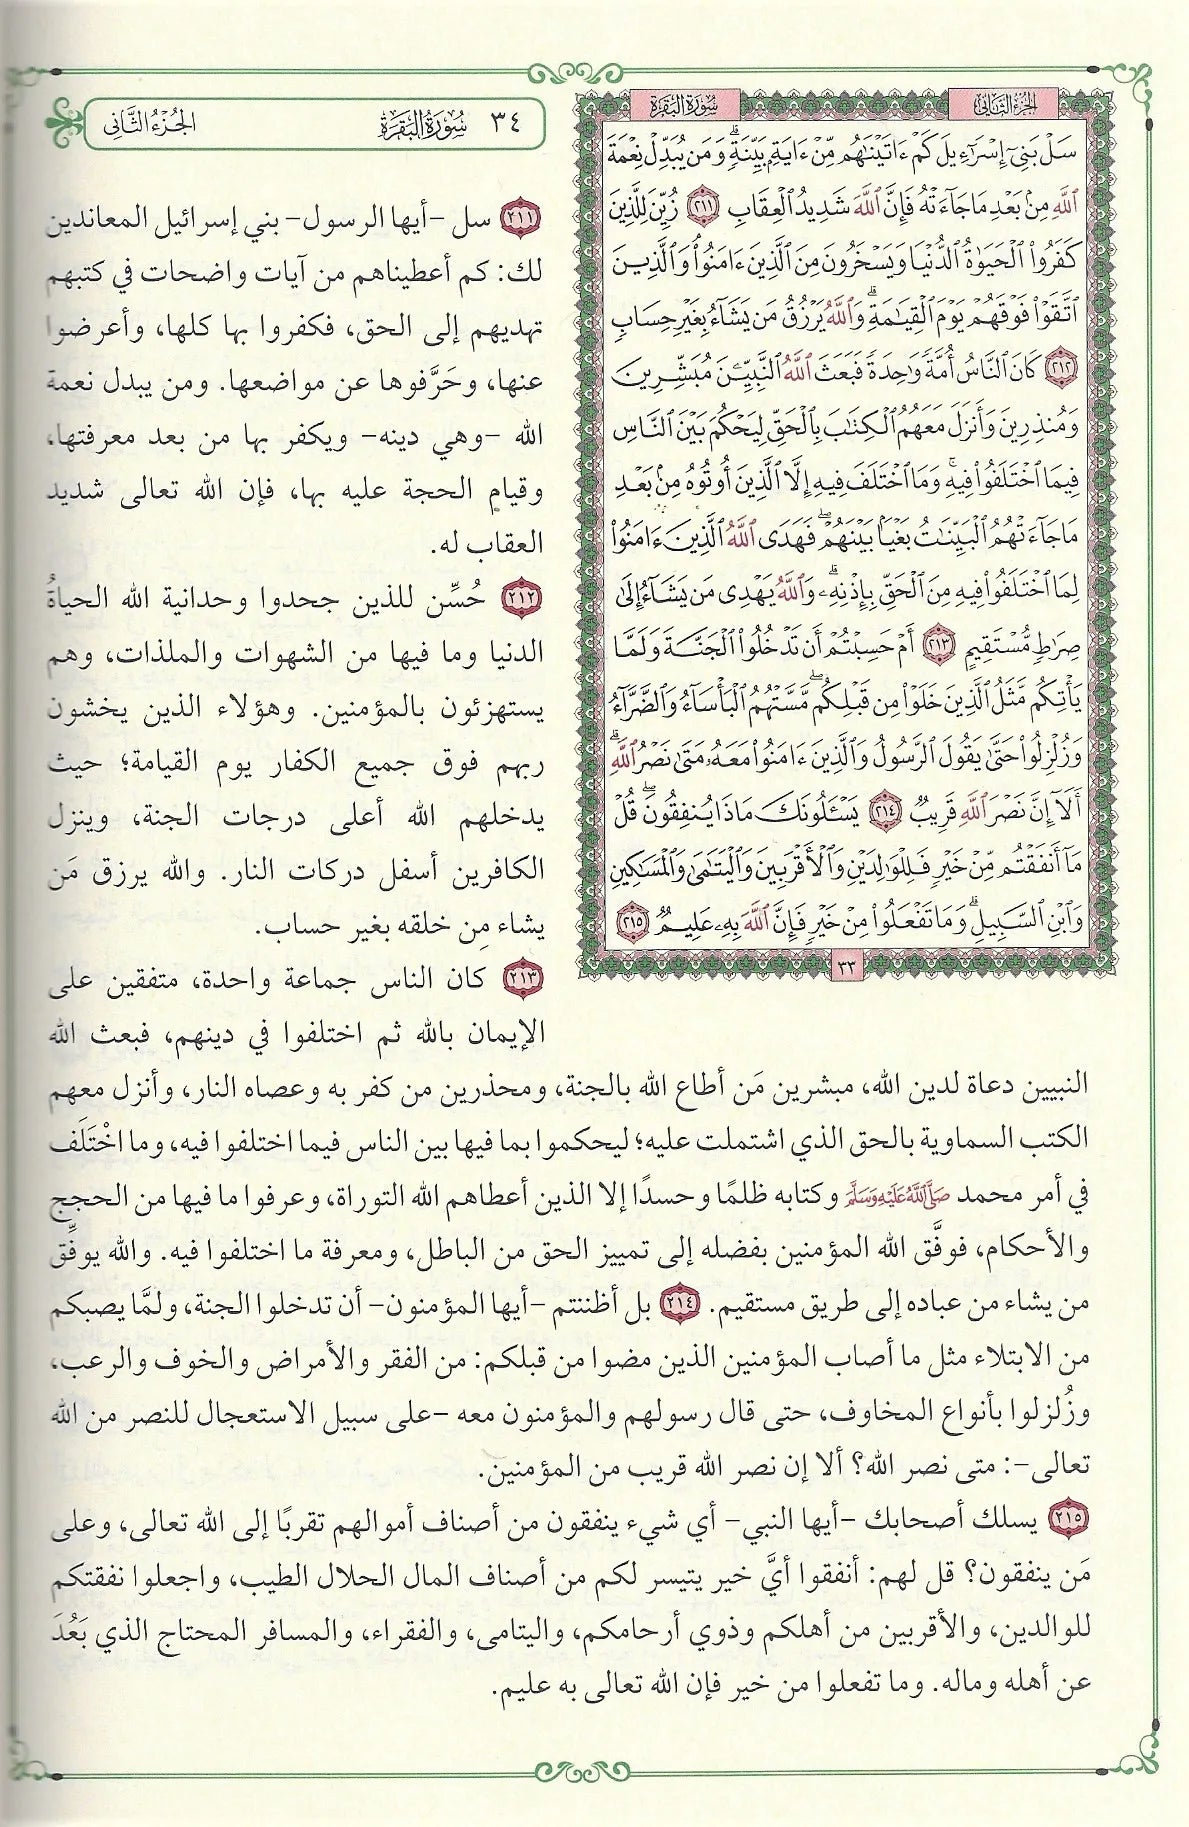 الجزء الثاني
سورة البقرة
سَلْ بَنِىٓ إِسْرَٰٓءِيلَ كَمْ ءَاتَيْنَٰهُم مِّنْ ءَايَةٍۭ بَيِّنَةٍۗ وَمَن يُبَدِّلْ نِعْمَةَ
ٱللَّهِ مِنۢ بَعْدِ مَا جَآءَتْهُ فَإِنَّ ٱللَّهَ شَدِيدُ ٱلْعِقَابِ ٢١١ زُيِّنَ لِلَّذِينَ
كَفَرُوا۟ ٱلْحَيَوٰةُ ٱلدُّنْيَا وَيَسْخَرُونَ مِنَ ٱلَّذِينَ ءَامَنُوا۟ۘ وَٱلَّذِينَ
ٱتَّقَوْا۟ فَوْقَهُمْ يَوْمَ ٱلْقِيَٰمَةِۗ وَٱللَّهُ يَرْزُقُ مَن يَشَآءُ بِغَيْرِ حِسَابٍ
٢١٢ كَانَ ٱلنَّاسُ أُمَّةً وَٰحِدَةً فَبَعَثَ ٱللَّهُ ٱلنَّبِيِّۦنَ مُبَشِّرِينَ
وَمُنذِرِينَ وَأَنزَلَ مَعَهُمُ ٱلْكِتَٰبَ بِٱلْحَقِّ لِيَحْكُمَ بَيْنَ ٱلنَّاسِ
فِيمَا ٱخْتَلَفُوا۟ فِيهِۚ وَمَا ٱخْتَلَفَ فِيهِ إِلَّا ٱلَّذِينَ أُوتُوهُ مِنۢ بَعْدِ
مَا جَآءَتْهُمُ ٱلْبَيِّنَٰتُ بَغْيًۢا بَيْنَهُمْۖ فَهَدَى ٱللَّهُ ٱلَّذِينَ ءَامَنُوا۟
لِمَا ٱخْتَلَفُوا۟ فِيهِ مِنَ ٱلْحَقِّ بِإِذْنِهِۦۗ وَٱللَّهُ يَهْدِى مَن يَشَآءُ إِلَىٰ
صِرَٰطٍ مُّسْتَقِيمٍ ٢١٣ أَمْ حَسِبْتُمْ أَن تَدْخُلُوا۟ ٱلْجَنَّةَ وَلَمَّا
يَأْتِكُم مَّثَلُ ٱلَّذِينَ خَلَوْا۟ مِن قَبْلِكُمۖ مَّسَّتْهُمُ ٱلْبَأْسَآءُ وَٱلضَّرَّآءُ
وَزُلْزِلُوا۟ حَتَّىٰ يَقُولَ ٱلرَّسُولُ وَٱلَّذِينَ ءَامَنُوا۟ مَعَهُۥ مَتَىٰ نَصْرُ ٱللَّهِۗ
أَلَآ إِنَّ نَصْرَ ٱللَّهِ قَرِيبٌ ٢١٤ يَسْـَٔلُونَكَ مَاذَا يُنفِقُونَۖ قُلْ
مَآ أَنفَقْتُم مِّنْ خَيْرٍ فَلِلْوَٰلِدَيْنِ وَٱلْأَقْرَبِينَ وَٱلْيَتَٰمَىٰ وَٱلْمَسَٰكِينِ
وَٱبْنِ ٱلسَّبِيلِۗ وَمَا تَفْعَلُوا۟ مِنْ خَيْرٍ فَإِنَّ ٱللَّهَ بِهِۦ عَلِيمٌ ٢١٥
٣٣
٣٤ سورة البقرة الجزء الثاني
٢١١ سل -أيها الرسول- بني إسرائيل المعاندين
لك: كم أعطيناهم من آيات واضحات في كتبهم
تهديهم إلى الحق، فكفروا بها كلها، وأعرضوا
عنها، وحَرَّفوها عن مواضعها. ومن يبدل نعمة
الله -وهي دينه- ويكفر بها من بعد معرفتها،
وقيام الحجة عليه بها، فإن الله تعالى شديد
العقاب له.
٢١٢ حُسِّن للذين جحدوا وحدانية الله الحياةُ
الدنيا وما فيها من الشهوات والملذات، وهم
يستهزئون بالمؤمنين. وهؤلاء الذين يخشون
ربهم فوق جميع الكفار يوم القيامة؛ حيث
يدخلهم الله أعلى درجات الجنة، وينزل
الكافرين أسفل دركات النار. والله يرزق مَن
يشاء مِن خلقه بغير حساب.
٢١٣ كان الناس جماعة واحدة، متفقين على
الإيمان بالله ثم اختلفوا في دينهم، فبعث الله
النبيين دعاة لدين الله، مبشرين مَن أطاع الله بالجنة، ومحذرين من كفر به وعصاه النار، وأنزل معهم
الكتب السماوية بالحق الذي اشتملت عليه؛ ليحكموا بما فيها بين الناس فيما اختلفوا فيه، وما اخْتَلَف
في أمر محمد صَلَّى اللهُ عَلَيْهِ وَسَلَّمَ وكتابه ظلمًا وحسدًا إلا الذين أعطاهم الله التوراة، وعرفوا ما فيها من الحجج
والأحكام، فوفَّق الله المؤمنين بفضله إلى تمييز الحق من الباطل، ومعرفة ما اختلفوا فيه. والله يوفِّق
من يشاء من عباده إلى طريق مستقيم. ٢١٤ بل أظننتم -أيها المؤمنون- أن تدخلوا الجنة، ولمَّا يصبكم
من الابتلاء مثل ما أصاب المؤمنين الذين مضوا من قبلكم: من الفقر والأمراض والخوف والرعب،
وزُلزلوا بأنواع المخاوف، حتى قال رسولهم والمؤمنون معه -على سبيل الاستعجال للنصر من الله
تعالى-: متى نصر الله؟ ألا إن نصر الله قريب من المؤمنين.
٢١٥ يسلك أصحابك -أيها النبي- أي شيء ينفقون من أصناف أموالهم تقربًا إلى الله تعالى، وعلى
مَن ينفقون؟ قل لهم: أنفقوا أيَّ خير يتيسر لكم من أصناف المال الحلال الطيب، واجعلوا نفقتكم
للوالدين، والأقربين من أهلكم وذوي أرحامكم، واليتامى، والفقراء، والمسافر المحتاج الذي بَعُدَ
عن أهله وماله. وما تفعلوا من خير فإن الله تعالى به عليم.